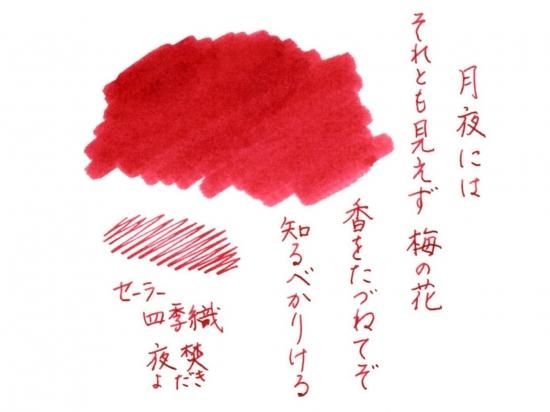 月夜には
それとも見えず 梅の花
香をたづねてぞ
知るべかりける
セーラー
四季織
夜焚
よだき